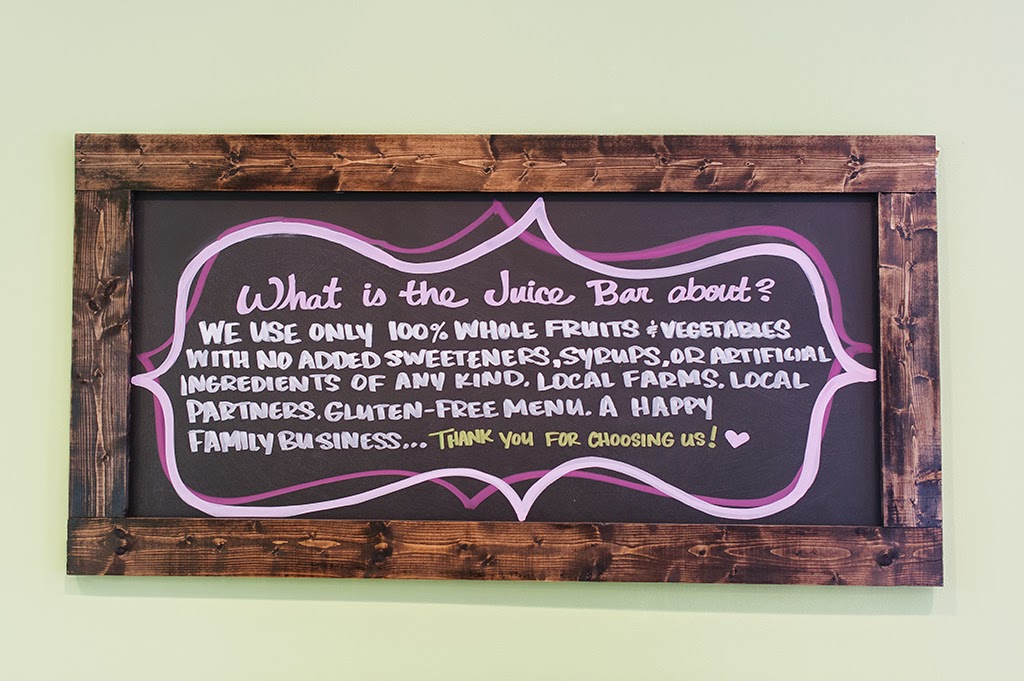 What is the Juice Bar about?
WE USE ONLY 100% WHOLE FRUITS & VEGETABLES
WITH NO ADDED SWEETENERS, SYRUPS, OR ARTIFICIAL
INGREDIENTS OF ANY KIND. LOCAL FARMS. LOCAL
PARTNERS. GLUTEN-FREE MENU. A HAPPY
FAMILY BUSINESS... THANK YOU FOR CHOOSING US! ♥